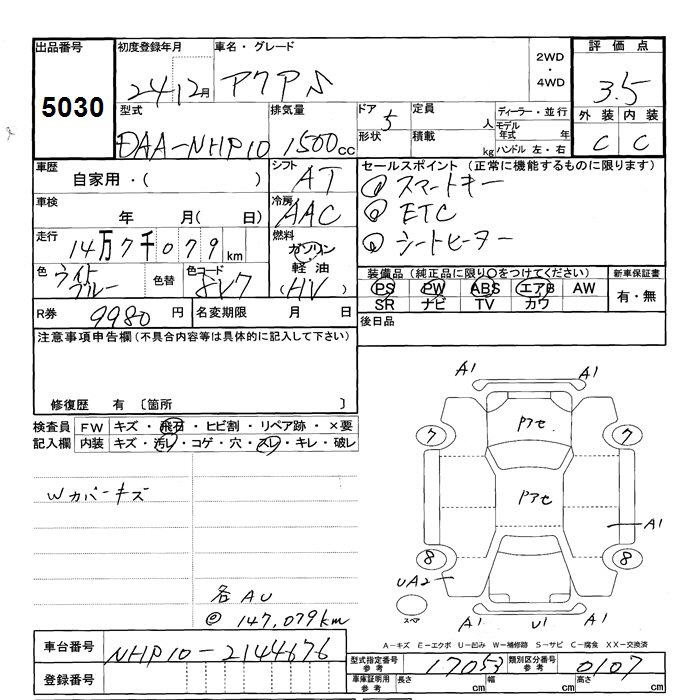 出品番号 初度登録年月 車名・グレード 評価点
5030 24 12月 アクア S 2WD・4WD 3.5
型式 排気量 ドア 5 定員 人 ディーラー・並行 外装 内装
DAA-NHP10 1500cc 形状 積載 kg モデル年式 年 ハンドル 左・右 C C
車歴 自家用・( ) シフト AT セールスポイント (正常に機能するものに限ります)
① スマートキー
車検 年 月( 日) 冷房 AAC ② ETC
走行 14万7千079km 燃料 ガソリン 軽油 (HV) ③ シートヒーター
色 ライトブルー 色替 色コード 8V7 装備品 (純正品に限り○をつけてください) 新車保証書
PS PW ABS エアB AW 有・無
SR ナビ TV カワ
R券 9980円 名変期限 月 日 後日品
注意事項申告欄(不具合内容等は具体的に記入して下さい)
修復歴 有 〔箇所 〕
検査員 FW キズ・飛石・ヒビ割・リペア跡・×要
記入欄 内装 キズ・汚レ・コゲ・穴・スレ・キレ・破レ
Wカバーキズ
A1 A1
Pアせ
7 7
Pアせ
A1
8 8
UA2
スペア
A1 U1 A1
各AU
@ 147,079km
A-キズ E-エクボ U-凹み W-補修跡 S-サビ C-腐食 XX-交換済
車台番号 NHP10-2144676
型式指定番号 参考 17053 類別区分番号 参考 0107
登録番号 車庫証明用 参考 長さ cm 幅 cm 高さ cm